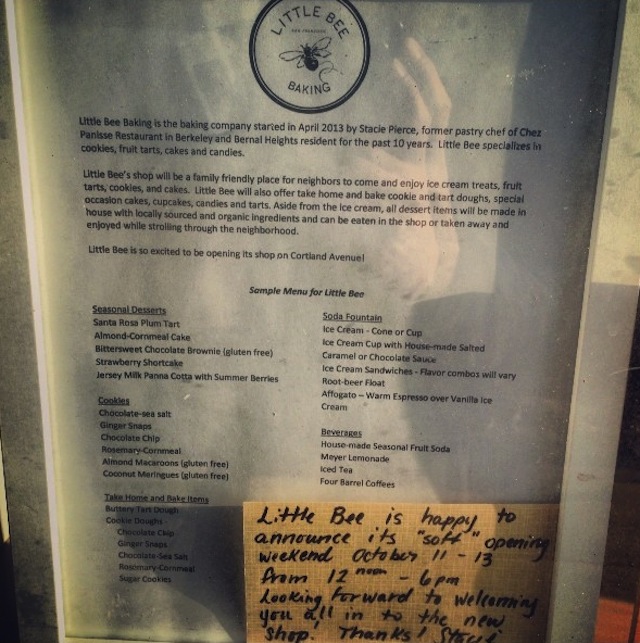 LITTLE BEE
SAN FRANCISCO
BAKING
Little Bee Baking is the baking company started in April 2013 by Stacie Pierce, former pastry chef of Chez
Panisse Restaurant in Berkeley and Bernal Heights resident for the past 10 years. Little Bee specializes in
cookies, fruit tarts, cakes and candies.
Little Bee's shop will be a family friendly place for neighbors to come and enjoy ice cream treats, fruit
tarts, cookies, and cakes. Little Bee will also offer take home and bake cookie and tart doughs, special
occasion cakes, cupcakes, candies and tarts. Aside from the ice cream, all dessert items will be made in
house with locally sourced and organic ingredients and can be eaten in the shop or taken away and
enjoyed while strolling through the neighborhood.
Little Bee is so excited to be opening its shop on Cortland Avenue!
Sample Menu for Little Bee
Seasonal Desserts
Santa Rosa Plum Tart
Almond-Cornmeal Cake
Bittersweet Chocolate Brownie (gluten free)
Strawberry Shortcake
Jersey Milk Panna Cotta with Summer Berries
Cookies
Chocolate-sea salt
Ginger Snaps
Chocolate Chip
Rosemary-Cornmeal
Almond Macaroons (gluten free)
Coconut Meringues (gluten free)
Take Home and Bake Items
Buttery Tart Dough
Cookie Doughs -
Chocolate Chip
Ginger Snaps
Chocolate-Sea Salt
Rosemary-Cornmeal
Sugar Cookies
Soda Fountain
Ice Cream - Cone or Cup
Ice Cream Cup with House-made Salted
Caramel or Chocolate Sauce
Ice Cream Sandwiches - Flavor combos will vary
Root-beer Float
Affogato – Warm Espresso over Vanilla Ice
Cream
Beverages
House-made Seasonal Fruit Soda
Meyer Lemonade
Iced Tea
Four Barrel Coffees
Little Bee is happy to
announce its "soft" opening
weekend October 11 - 13
from 12 noon - 6 pm
Looking forward to welcoming
you all in to the new
shop! Thanks! Stacie